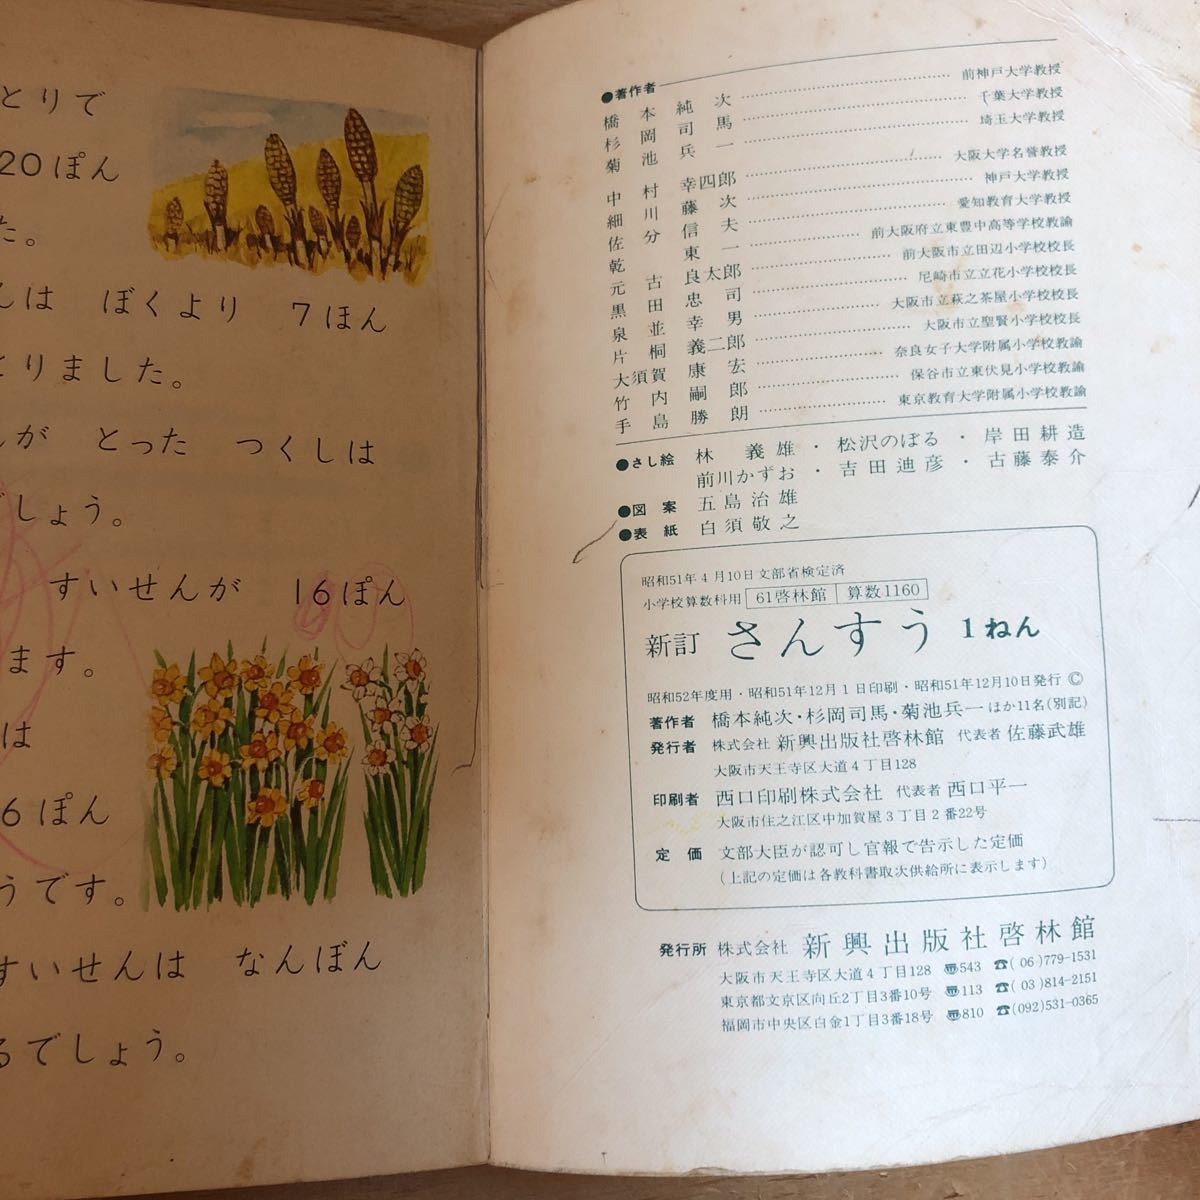 とりで
20ぽん
た。
んは ぼくより 7ほん
とりました。
んが とった つくしは
でしょう。
すいせんが 16ぽん
ます。
は
6ぽん
うです。
すいせんは なんぼん
るでしょう。
●著作者
橋本純次 前神戸大学教授
杉岡司馬 千葉大学教授
菊池兵一 埼玉大学教授
中村幸四郎 大阪大学名誉教授
細川藤次 神戸大学教授
佐分信夫 愛知教育大学教授
乾東一 前大阪府立東豊中高等学校教諭
元古良太郎 前大阪市立田辺小学校校長
黒田忠司 尼崎市立立花小学校校長
泉並幸男 大阪市立萩之茶屋小学校校長
片桐義二郎 大阪市立聖賢小学校校長
大須賀康宏 奈良女子大学附属小学校教諭
竹内嗣郎 保谷市立東伏見小学校教諭
手島勝朗 東京教育大学附属小学校教諭
●さし絵 林義雄・松沢のぼる・岸田耕造
前川かずお・吉田迪彦・古藤泰介
●図案 五島治雄
●表紙 白須敬之
昭和51年4月10日文部省検定済
小学校算数科用 61啓林館 算数1160
新訂 さんすう 1ねん
昭和52年度用・昭和51年12月1日印刷・昭和51年12月10日発行 ©
著作者 橋本純次・杉岡司馬・菊池兵一ほか11名(別記)
発行者 株式会社 新興出版社啓林館 代表者 佐藤武雄
大阪市天王寺区大道4丁目128
印刷者 西口印刷株式会社 代表者 西口平一
大阪市住之江区中加賀屋3丁目2番22号
定価 文部大臣が認可し官報で告示した定価
(上記の定価は各教科書取次供給所に表示します)
発行所 株式会社 新興出版社啓林館
大阪市天王寺区大道4丁目128 〠543 ☎(06)779-1531
東京都文京区向丘2丁目3番10号 〠113 ☎(03)814-2151
福岡市中央区白金1丁目3番18号 〠810 ☎(092)531-0365